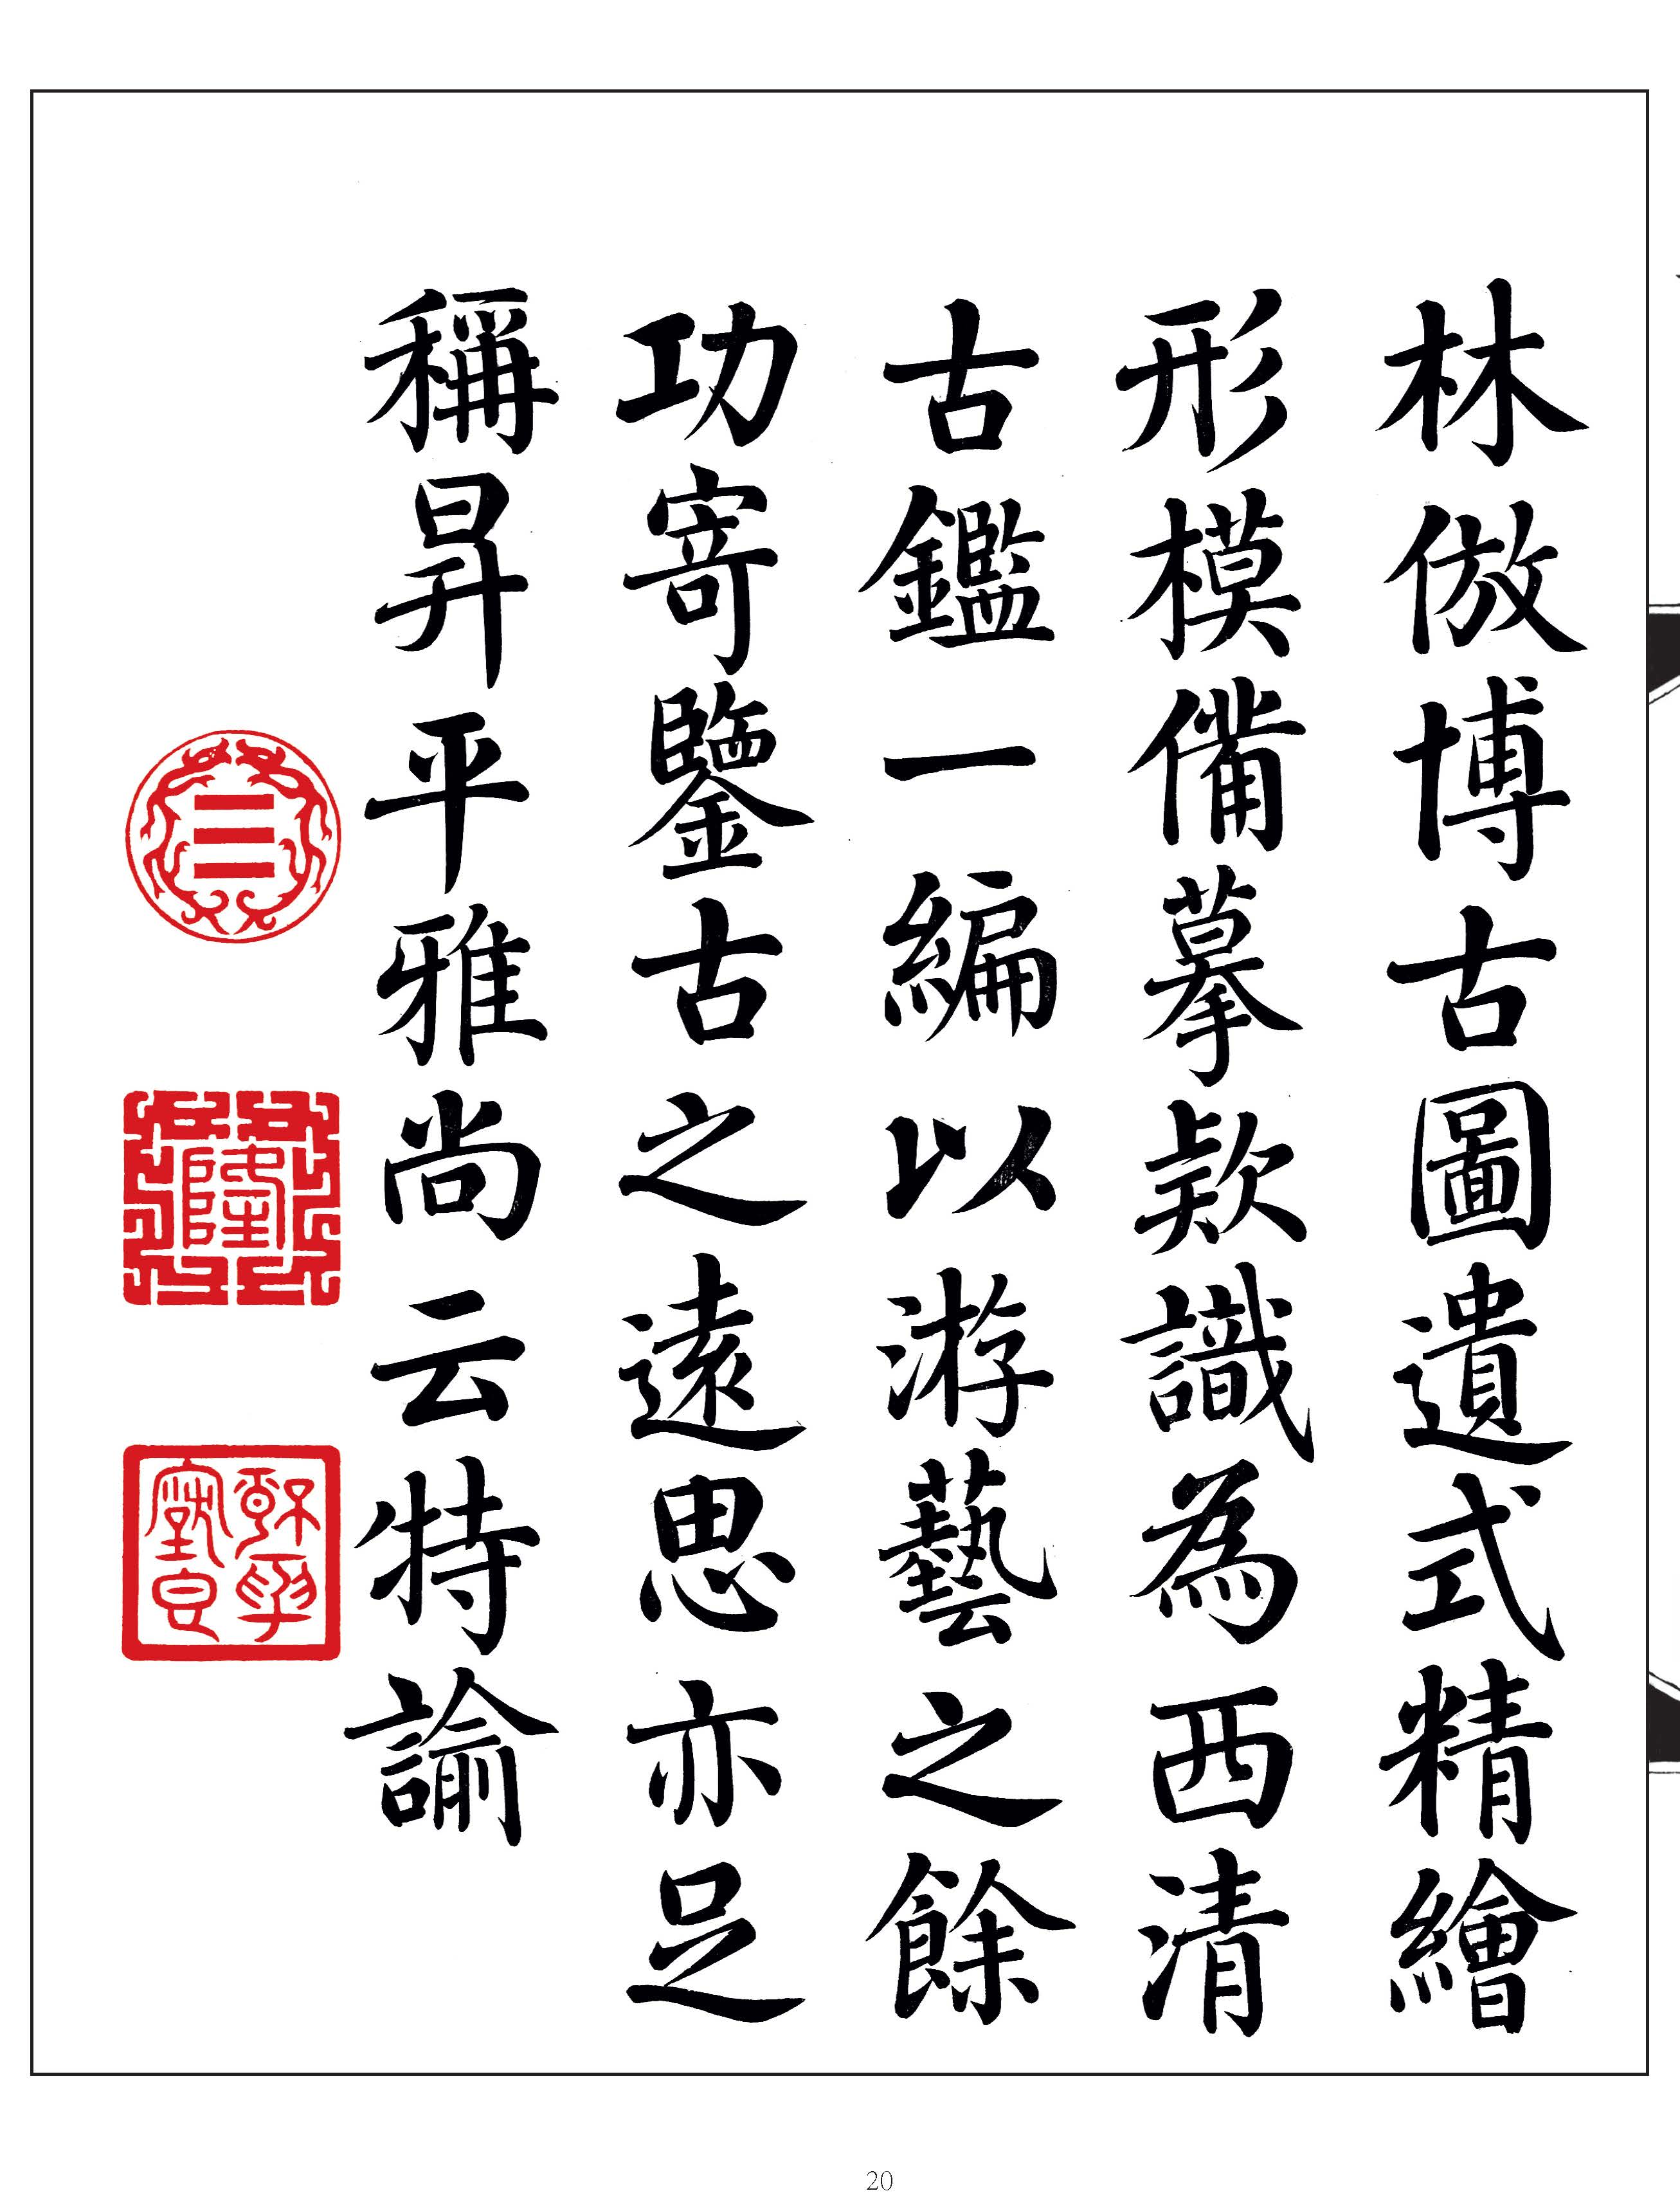 林倣博古圖遺式精繪
形模備摹款識為西清
古鑑一編以游藝之餘
功寄鑒古之遠思亦足
稱昇平雅尚云特諭
20